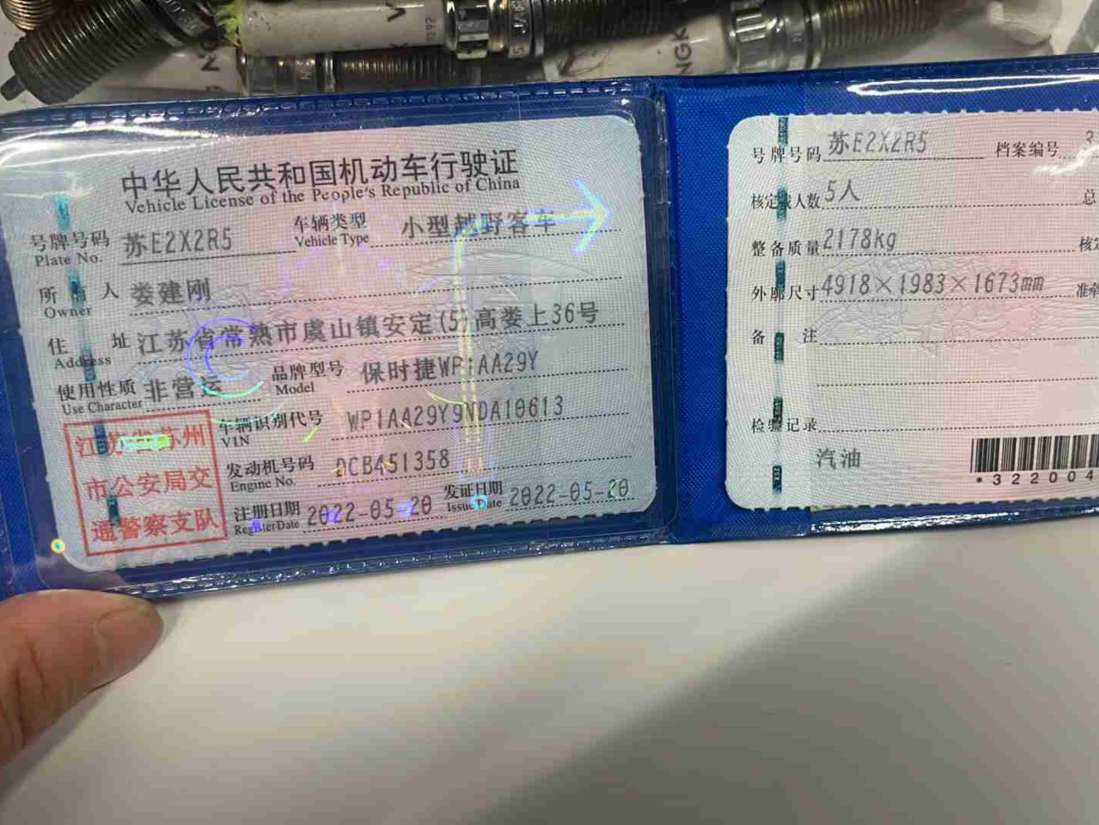 NGK
NGK
中华人民共和国机动车行驶证
Vehicle License of the People's Republic of China
号牌号码 苏E2X2R5 车辆类型 小型越野客车
Plate No. Vehicle Type
所有人 娄建刚
Owner
住址 江苏省常熟市虞山镇安定(5)高娄上36号
Address
使用性质 非营运 品牌型号 保时捷WP1AA29Y
Use Character Model
车辆识别代号 WP1AA29Y9NDA10613
VIN
发动机号码 DCB451358
Engine No.
注册日期 2022-05-20 发证日期 2022-05-20
Register Date Issue Date
江苏省苏州
市公安局交
通警察支队
号牌号码 苏E2X2R5 档案编号 3
核定载人数 5人 总
整备质量 2178kg 核定
外廓尺寸 4918×1983×1673mm 准牵
备注
检验记录
汽油
*322004